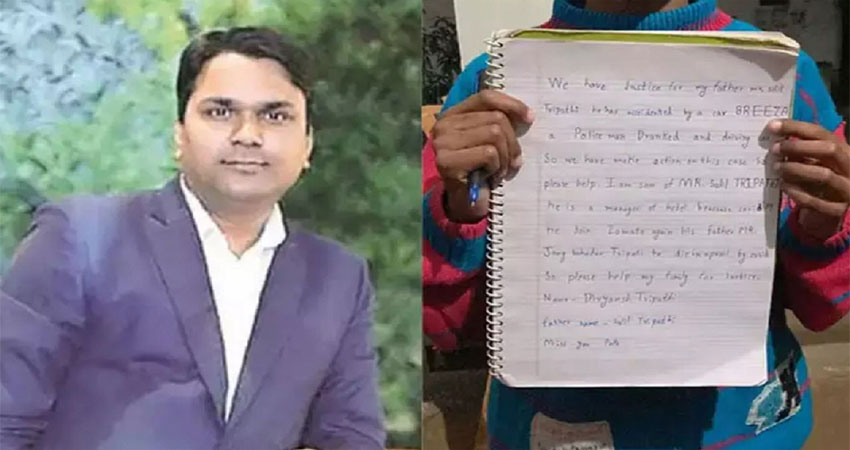 We have Justice for my father mr. Salil
Tripathi he has accidented by a car BREEZA
a Police man Dranked and driving
So we have make action on this case
please help. I am son of MR. Salil TRIPATHI
He is a manager of hotel because covid
He Join Zomato again his father MR.
Jang bahadur Tripathi he by covid
So please help my family for Justice
Name - Divyansh Tripathi
father name - Salil Tripathi
Miss you Papa